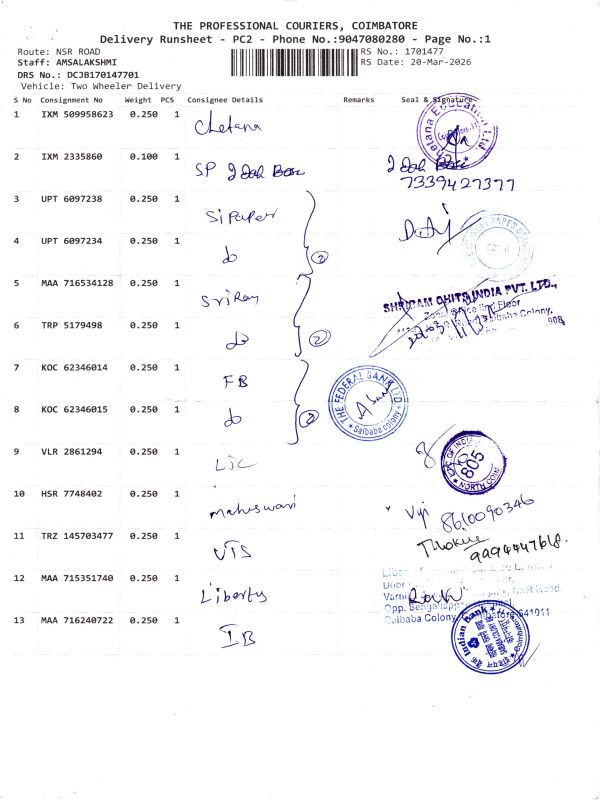 THE PROFESSIONAL COURIERS, COIMBATORE
Delivery Runsheet - PC2 - Phone No.:9047080280 - Page No.:1
Route: NSR ROAD
RS No.: 1701477
Staff: AMSALAKSHMI
RS Date: 20-Mar-2026
DRS No.: DCJB170147701
Vehicle: Two Wheeler Delivery
S No Consignment No Weight PCS Consignee Details Remarks Seal & Signature
1 IXM 509958623 0.250 1 Chetana
2 IXM 2335860 0.100 1 SP
7339427377
3 UPT 6097238 0.250 1 Si Paper
4 UPT 6097234 0.250 1 do
2
5 MAA 716534128 0.250 1 SriRam
SHRIRAM CHITS INDIA PVT. LTD.,
Floor
Saibaba Colony,
6 TRP 5179498 0.250 1 do
2
7 KOC 62346014 0.250 1 FB
THE FEDERAL BANK LTD.
Saibaba Colony
8 KOC 62346015 0.250 1 do
2
9 VLR 2861294 0.250 1 LIC
805
NORTH
10 HSR 7748402 0.250 1 Maheswari
8610090346
11 TRZ 145703477 0.250 1 UTS
9994447618.
12 MAA 715351740 0.250 1 Liberty
NSR Road.
Opp.
Saibaba Colony, 641011
13 MAA 716240722 0.250 1 IB
Indian Bank